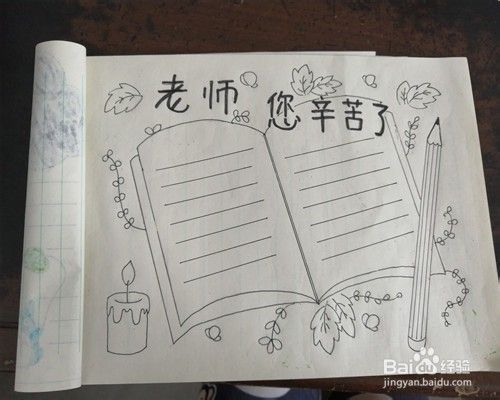 老师 您辛苦了
Baidu经验
jingyan.baidu.com